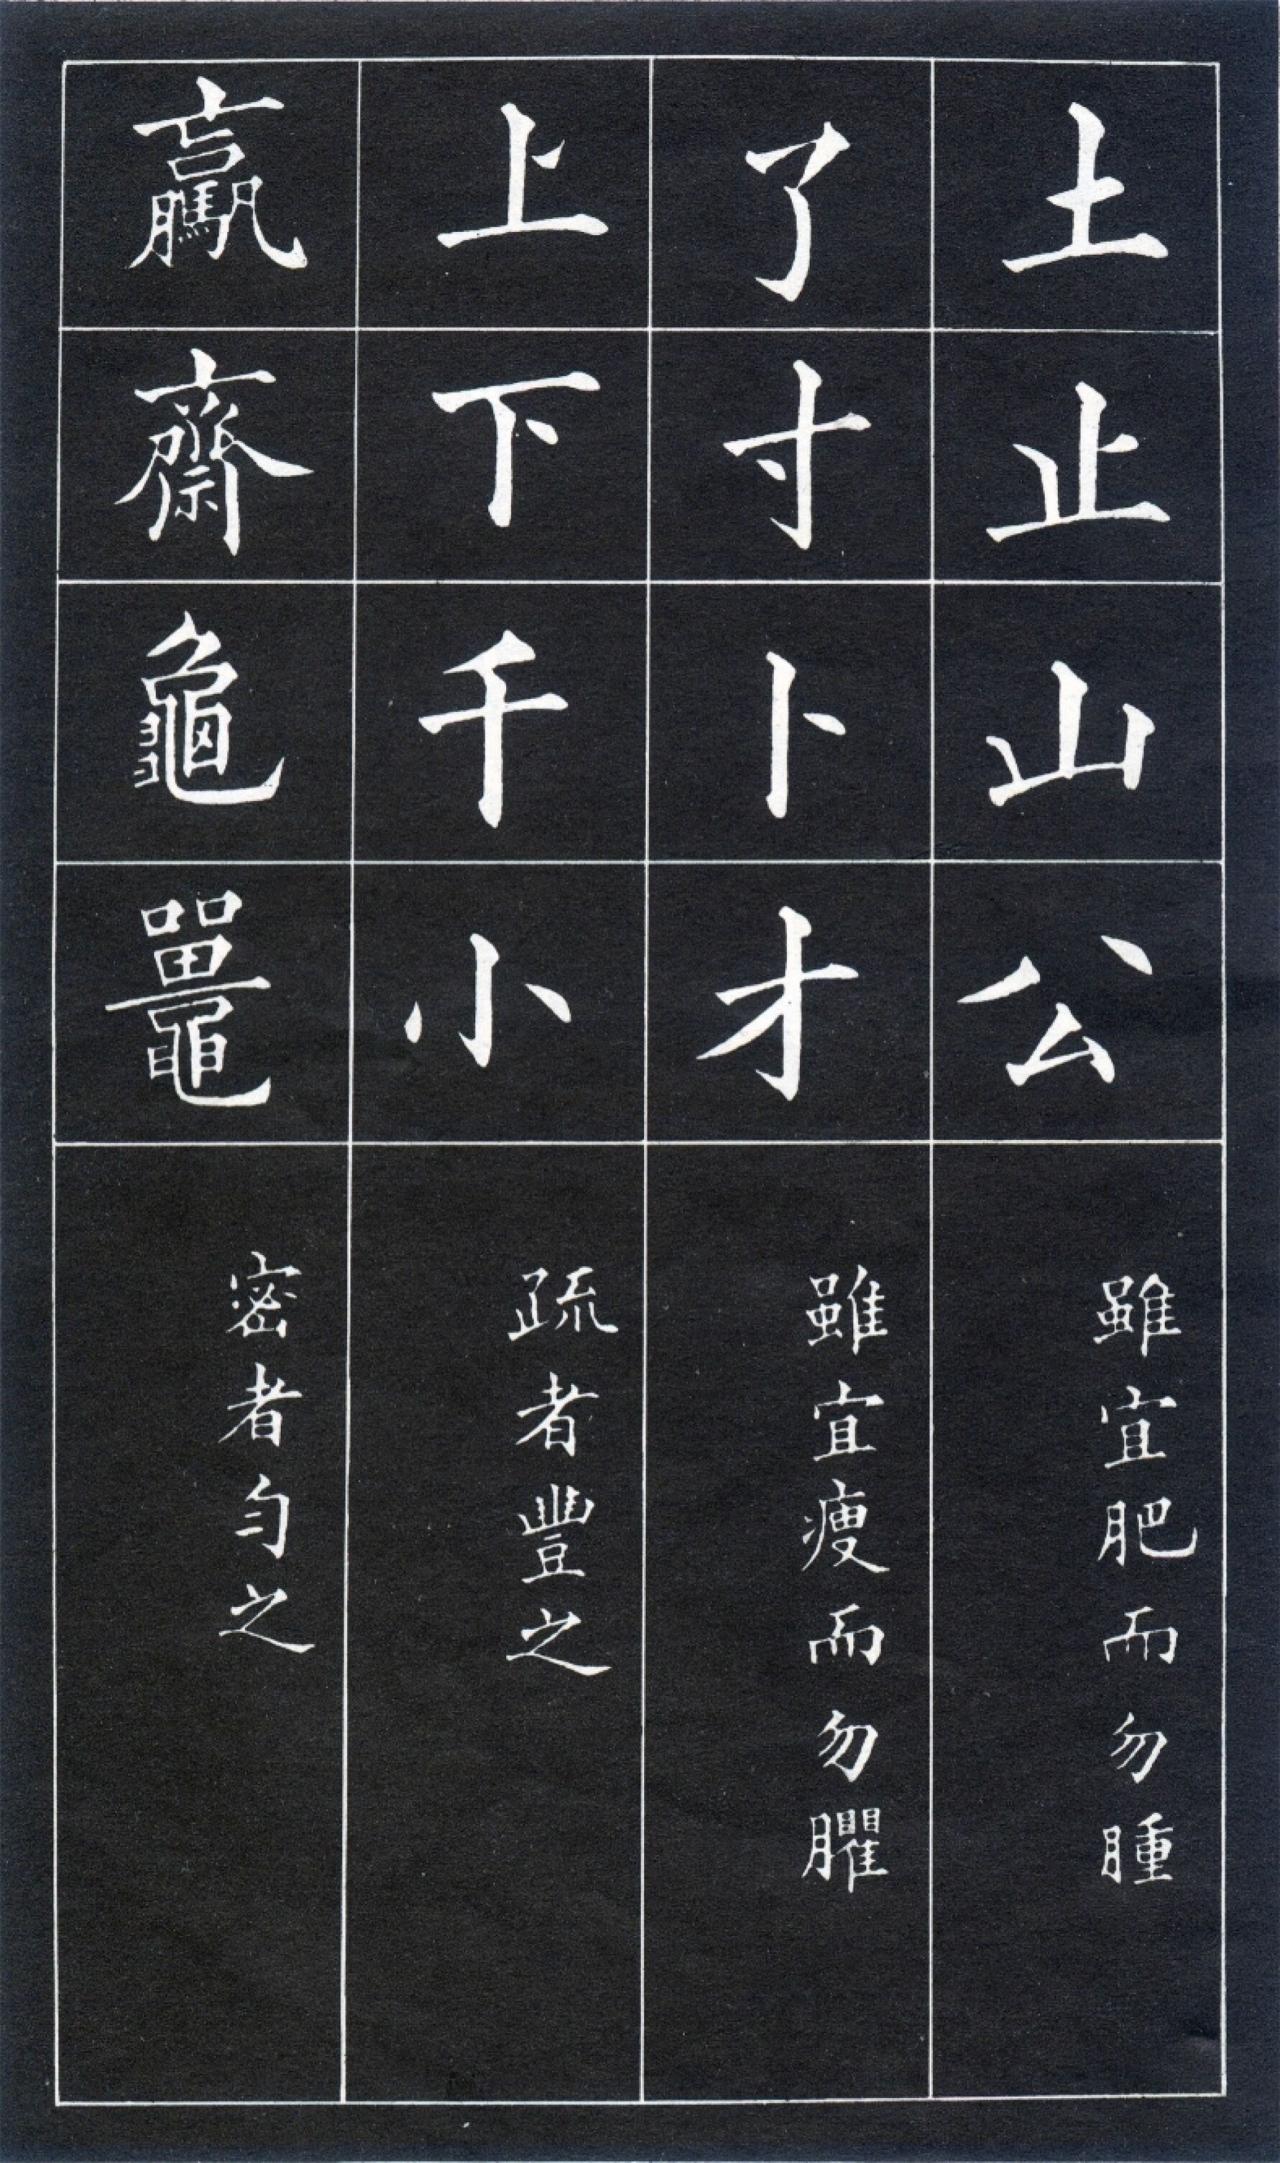 土止山公 雖宜肥而勿腫
了寸卜才 雖宜瘦而勿臞
上下千小 疏者豐之
驘齋龜鼉 密者勻之